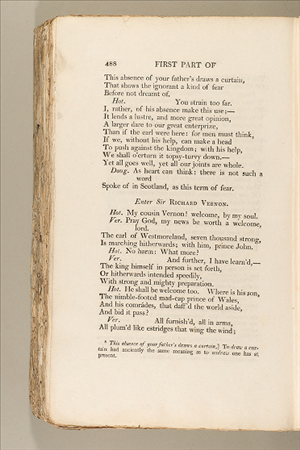 488 FIRST PART OF
This absence of your father's draws a curtain,
That shows the ignorant a kind of fear
Before not dreamt of.
Hot. You strain too far.
I, rather, of his absence make this use;—
It lends a lustre, and more great opinion,
A larger dare to our great enterprize,
Than if the earl were here: for men must think,
If we, without his help, can make a head
To push against the kingdom; with his help,
We shall o'erturn it topsy-turvy down.—
Yet all goes well, yet all our joints are whole.
Doug. As heart can think: there is not such a
word
Spoke of in Scotland, as this term of fear.
Enter Sir RICHARD VERNON.
Hot. My cousin Vernon! welcome, by my soul.
Ver. Pray God, my news be worth a welcome,
lord.
The earl of Westmoreland, seven thousand strong,
Is marching hitherwards; with him, prince John.
Hot. No harm: What more?
Ver. And further, I have learn'd,—
The king himself in person is set forth,
Or hitherwards intended speedily,
With strong and mighty preparation.
Hot. He shall be welcome too. Where is his son,
The nimble-footed mad-cap prince of Wales,
And his comrádes, that daff'd the world aside,
And bid it pass?
Ver. All furnish'd, all in arms,
All plum'd like estridges that wing the wind;
This absence of your father's draws a curtain,] To draw a cur-
tain had anciently the same meaning as to undraw one has at
present.